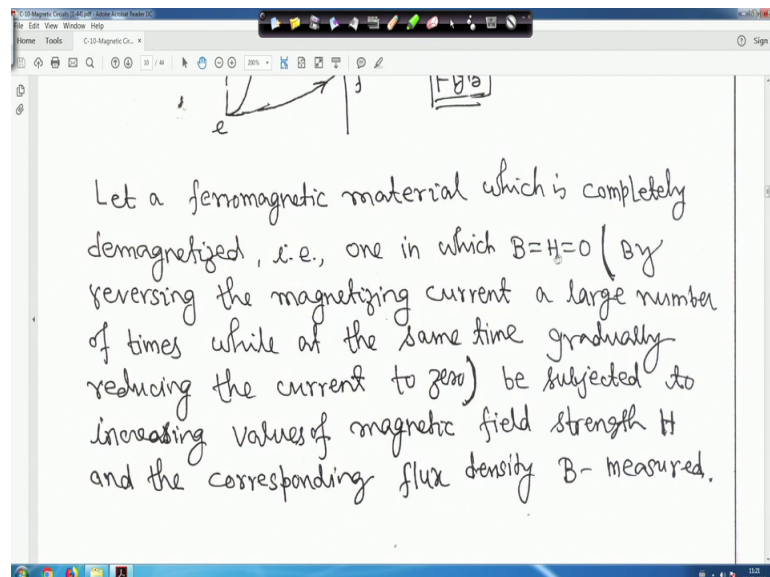 C-10-Magnetic Circuits [1-44].pdf - Adobe Acrobat Reader DC
File Edit View Window Help
Home Tools C-10-Magnetic Cir... × Sign
10 / 44 200%
e f Fig.3
Let a ferromagnetic material which is completely
demagnetized, i.e., one in which B=H=0 (By
reversing the magnetizing current a large number
of times while at the same time gradually
reducing the current to zero) be subjected to
increasing values of magnetic field strength H
and the corresponding flux density B- measured.
11:21